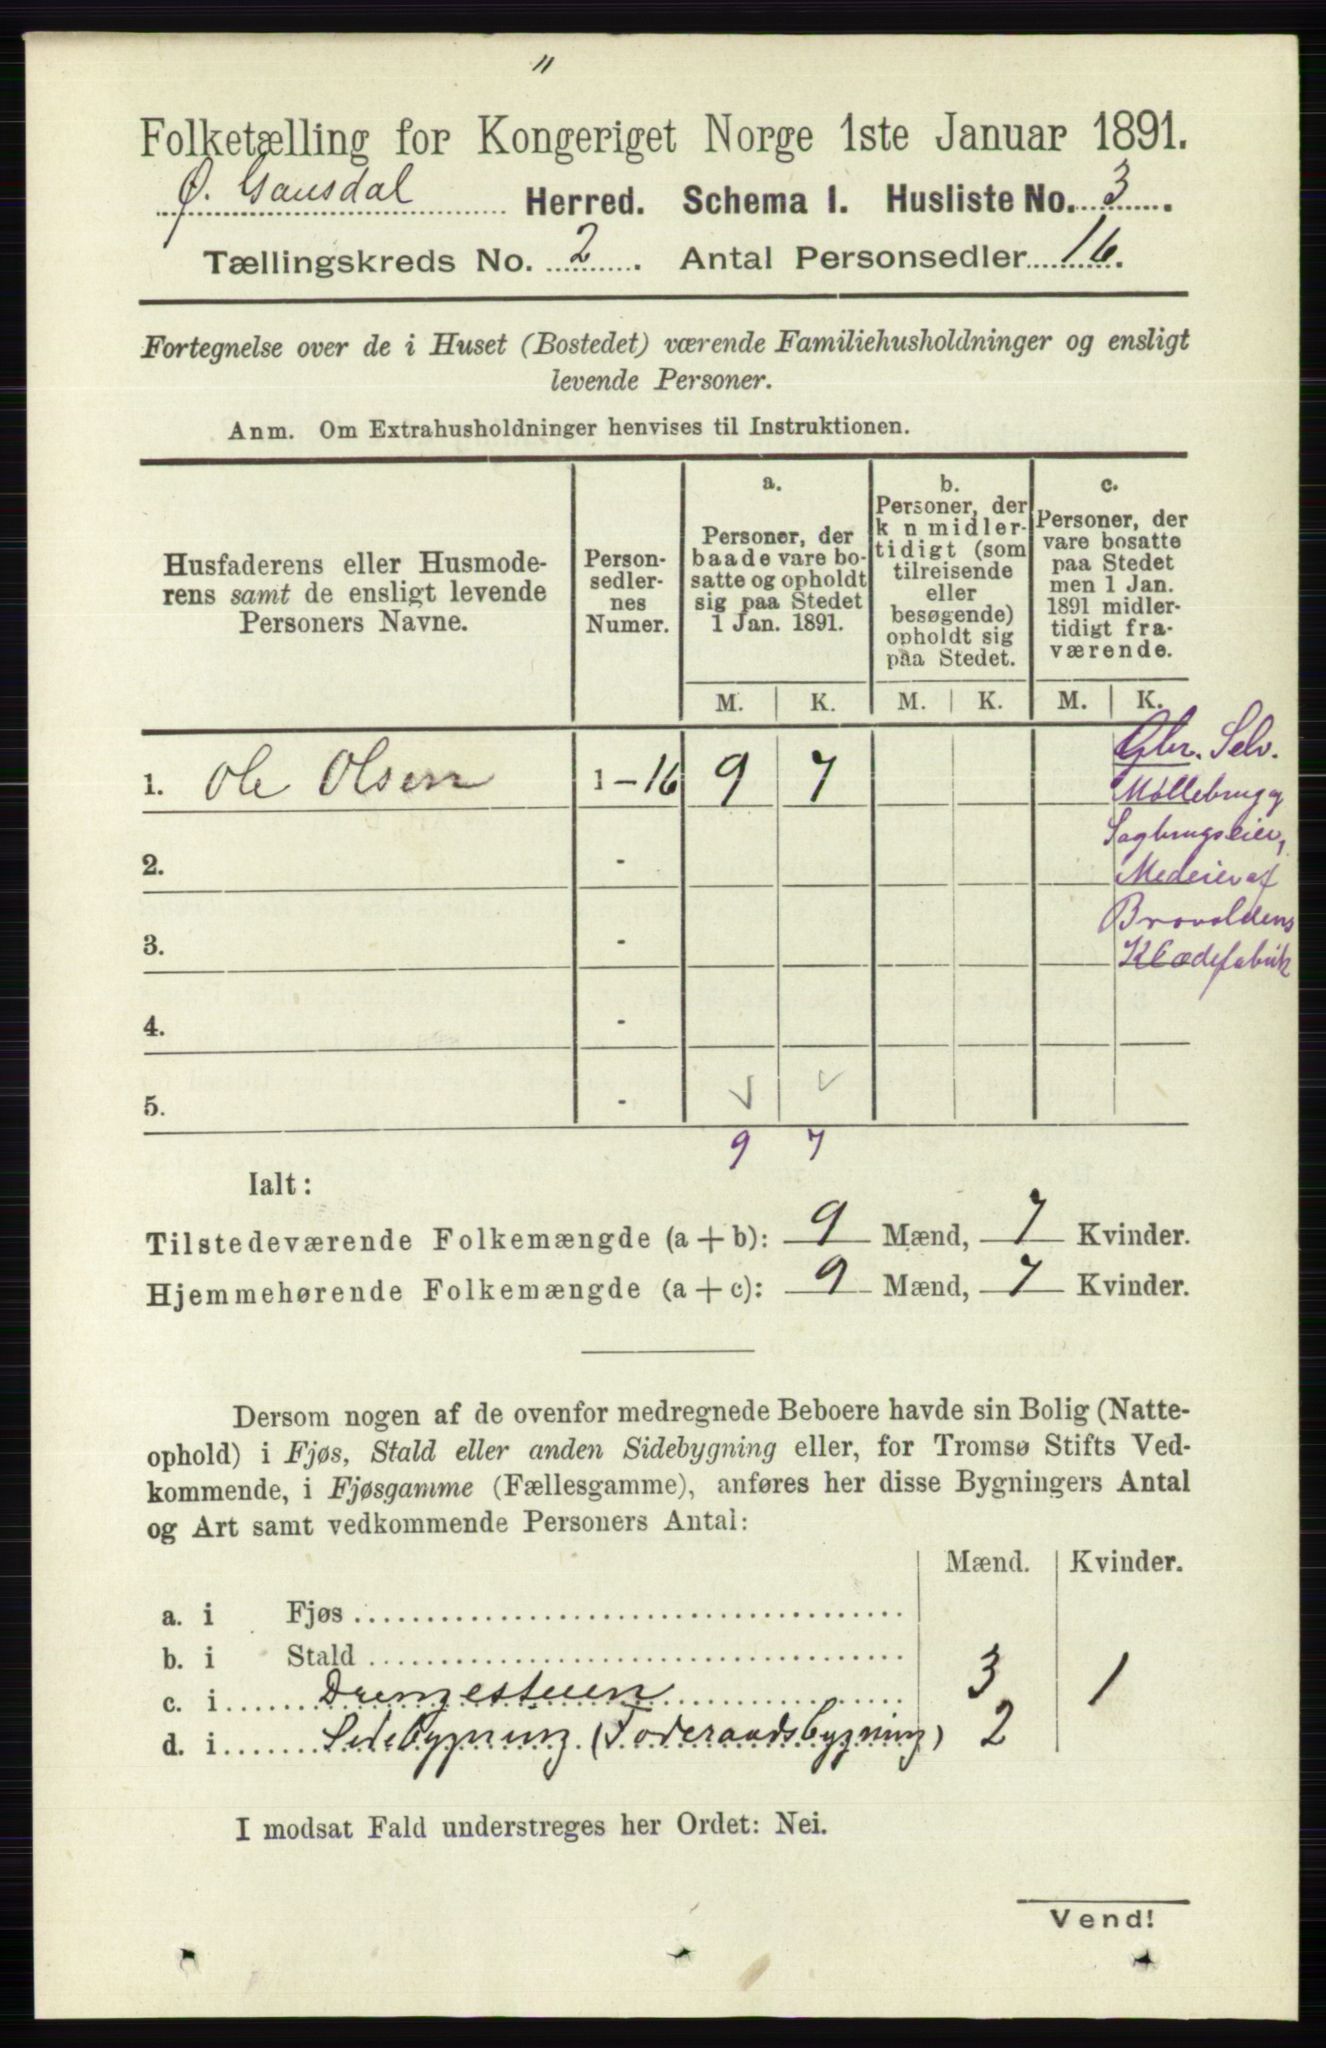 "
Folketælling for Kongeriget Norge 1ste Januar 1891.
Ø. Gausdal Herred. Schema I. Husliste No. 3.
Tællingskreds No. 2. Antal Personsedler 16.
Fortegnelse over de i Huset (Bostedet) værende Familiehusholdninger og ensligt
levende Personer.
Anm. Om Extrahusholdninger henvises til Instruktionen.
Husfaderens eller Husmode-
rens samt de ensligt levende
Personers Navne.
Person-
sedler-
nes
Numer.
a.
Personer, der
baade vare bo-
satte og opholdt
sig paa Stedet
1 Jan. 1891.
b.
Personer, der
k n midler-
tidigt (som
tilreisende
eller
besøgende)
opholdt sig
paa Stedet.
c.
Personer, der
vare bosatte
paa Stedet
men 1 Jan.
1891 midler-
tidigt fra-
værende.
M. K. M. K. M. K.
1. Ole Olsen 1-16 9 7
Gbr. Selv.
Møllebrug og
Sagbrugseier,
Medeier af
Brovoldens
Klædefabrik
2. -
3. -
4. -
5. -
9 7
Ialt:
Tilstedeværende Folkemængde (a + b): 9 Mænd, 7 Kvinder.
Hjemmehørende Folkemængde (a + c): 9 Mænd, 7 Kvinder.
Dersom nogen af de ovenfor medregnede Beboere havde sin Bolig (Natte-
ophold) i Fjøs, Stald eller anden Sidebygning eller, for Tromsø Stifts Ved-
kommende, i Fjøsgamme (Fællesgamme), anføres her disse Bygningers Antal
og Art samt vedkommende Personers Antal:
Mænd. Kvinder.
a. i Fjøs
b. i Stald
c. i Drengestuen 3 1
d. i Sidebygning (Foderaadsbygning) 2
I modsat Fald understreges her Ordet: Nei.
Vend!